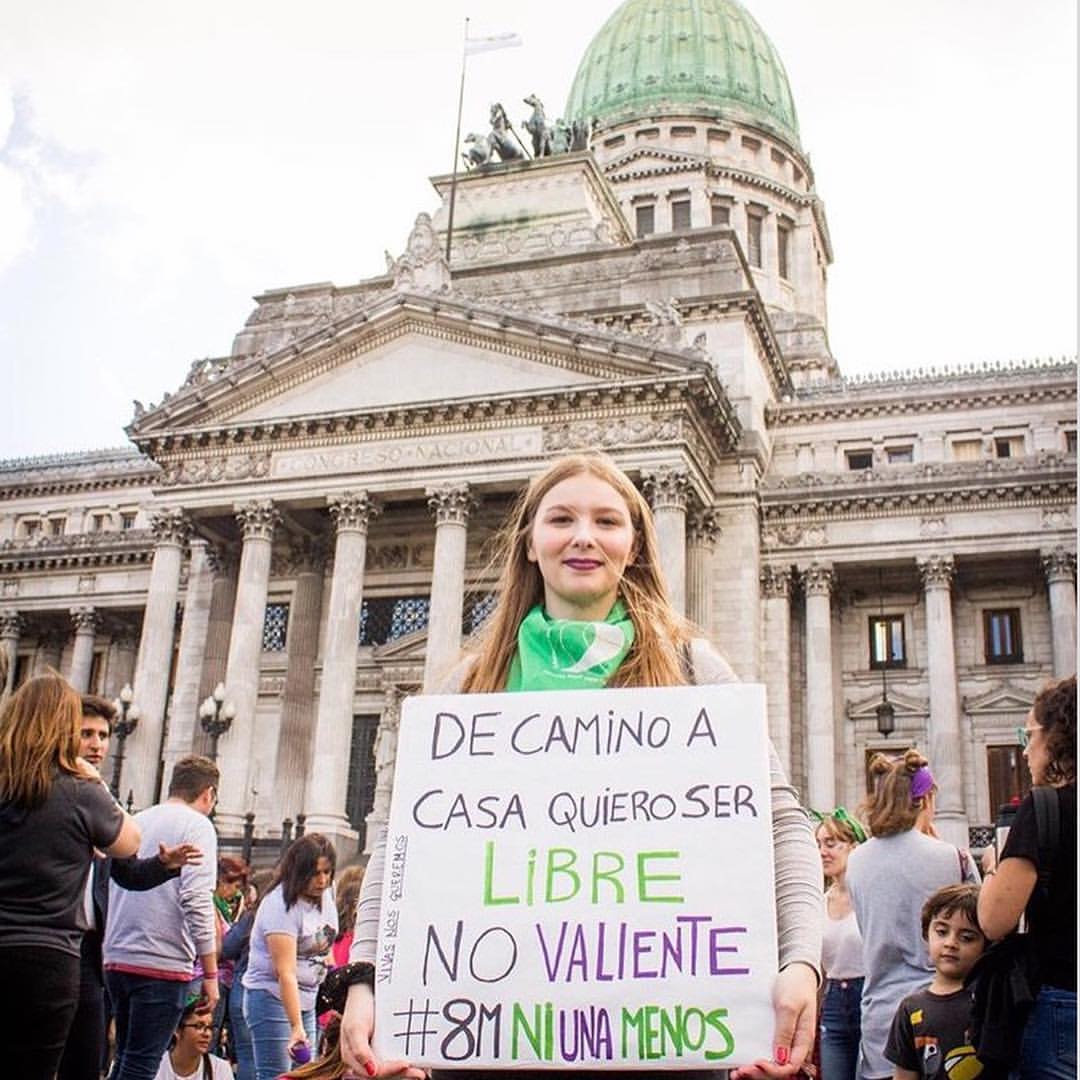 CONGRESO·NACIONAL
DE CAMiNO A
CASA QUIERO SER
LiBRE
NO VALIENTE
#8M Ni UNA MENOS
VIVAS NOS QUEREMOS